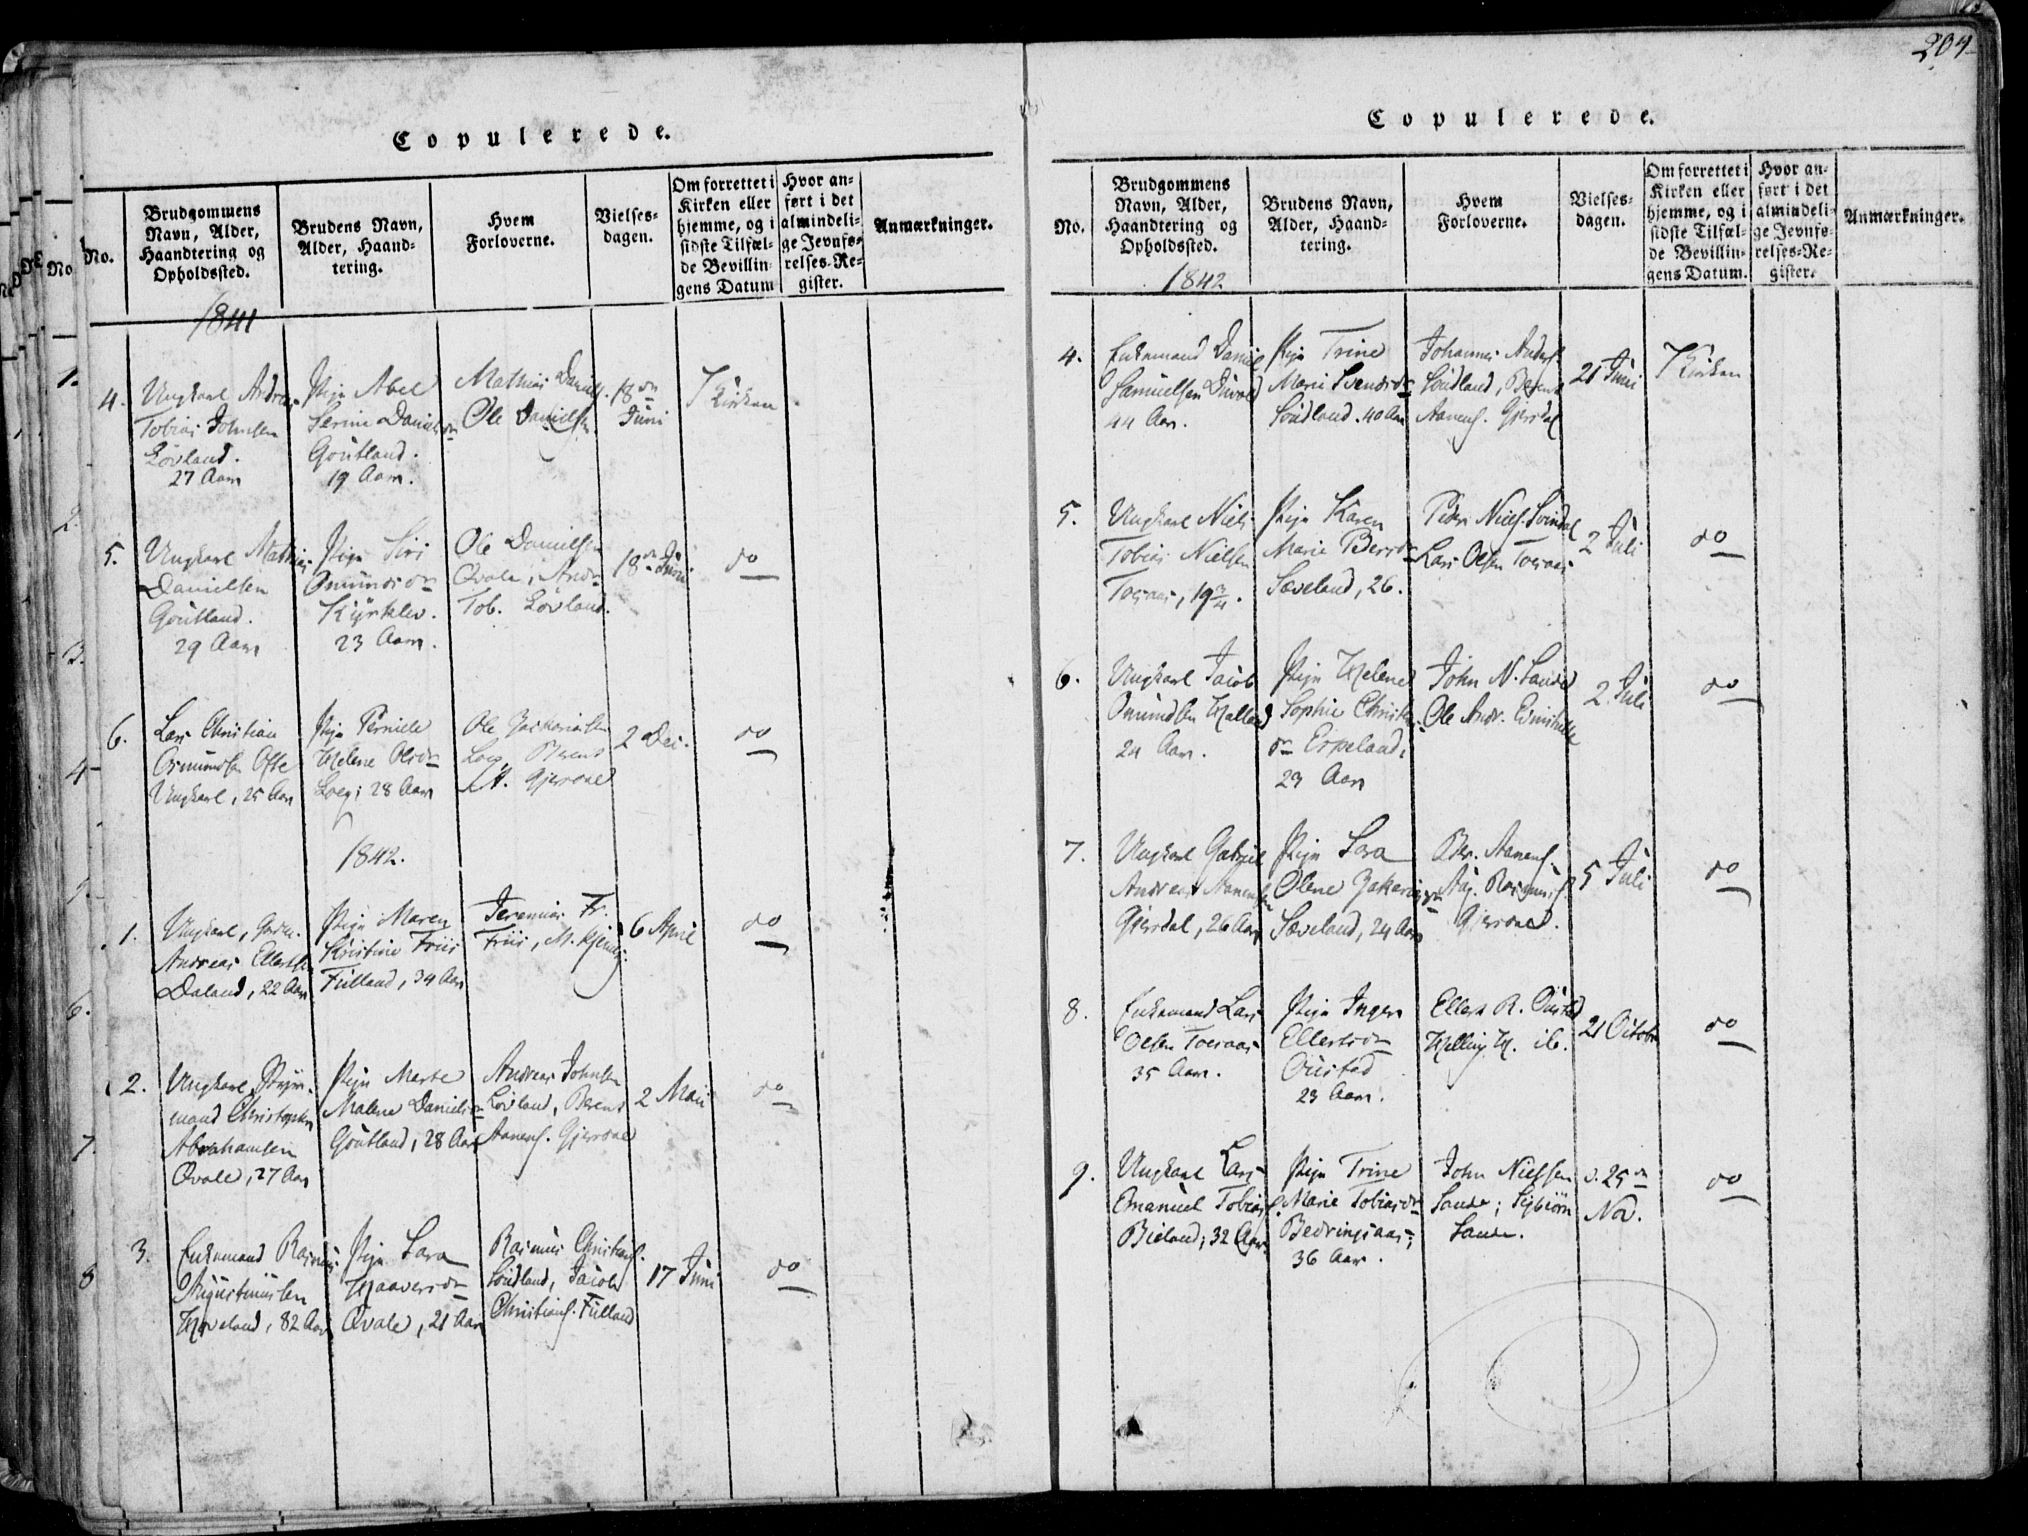 204
Copulerede.
No.
Brudgommens Navn, Alder, Haandtering og Opholdssted.
Brudens Navn, Alder, Haandtering.
Hvem Forloverne.
Vielsesdagen.
Om forrettet i Kirken eller hjemme, og i sidste Tilfælde Bevillingens Datum
Hvor anført i det almindelige Jevnførelses-Register.
Anmærkninger.
1841
4.
Ungkarl Andreas
Tobias Johnsen
Lövland.
27 Aar
Pige Abel
Serine Danielsdr
Goutland.
19 Aar.
Mathias Daniels.
Ole Danielsen
18de
Juni
I Kirken
5.
Ungkarl Mathias
Danielsen
Goutland.
29 Aar
Pige Siri
Omundsdr
Kyrklev.
23 Aar.
Ole Danielsen
Qvale, Andr.
Tob. Lövland.
18de Juni
do
6.
Lars Christian
Osmundsen Ofte
Ungkarl, 25 Aar
Pige Pernille
Helene Olsdr
Loeg; 28 Aar
Ole Zachariasen
Loeg, Berent
A. Gjersdal
2 Dec.
do
1842.
1.
Ungkarl,
Andreas Ellertsen
Daland, 22 Aar
Pige Maren
Kristine Friis
Fulland, 34 Aar
Jeremias Fr.
Friis, M.
6 April
do
2.
Ungkarl, Styrmand Christopher
Abrahamsen
Qvale, 27 Aar
Pige Marte
Malene Danielsdr
Goutland, 28 Aar
Andreas Johnsen
Lövland, Berent
Aanens. Gjersdal
2 Mai
do
3.
Enkemand Rasmus
Augustinusen
Hoveland, 82 Aar
Pige Sara
Haaversdr
Qvale, 21 Aar
Rasmus Christians.
Söudland, Jacob
Christians. Fulland
17 Juni
do
Copulerede.
No.
Brudgommens Navn, Alder, Haandtering og Opholdssted.
Brudens Navn, Alder, Haandtering.
Hvem Forloverne.
Vielsesdagen.
Om forrettet i Kirken eller hjemme, og i sidste Tilfælde Bevillingens Datum.
Hvor anført i det almindelige Jevnførelses-Register.
Anmærkninger.
1842
4.
Enkemand Daniel
Samuelsen
44 Aar.
Pige Trine
Marie Svendsdr
Söudland. 40 Aar
Johannes Anders.
Söudland, Berent
Aanens. Gjersdal
21 Juni
I Kirken
5.
Ungkarl Niels
Tobias Nielsen
Toeraas, 19 3/4.
Pige Karen
Marie Berrdr
Sæveland, 26.
Peder Niels. Svindal
Lars Olsen Toeraas
2 Juli
do
6.
Ungkarl Jacob
Omundsen Helland
24 Aar.
Pige Helene
Sophie Christens
dr Espeland,
23 Aar
John N. Sande
Ole Andr.
2 Juli
do
7.
Ungkarl Gabriel
Andreas Aanensen
Gjersdal, 26 Aar
Pige Sara
Olene Zakariasdr
Sæveland, 24 Aar
Ber. Aanens.
Aag. Rasmus.
Gjersdal.
5 Juli
do
8.
Enkemand Lars
Olsen Toeraas
35 Aar.
Pige Inger
Ellertsdr
Oustad
23 Aar.
Ellert R. Oustad
Helling H. ib.
21 Octobr
do
9.
Ungkarl Lars
Emanuel Tobias.
Bieland; 32 Aar
Pige Trine
Marie Tobiasdr
Bedringsaas;
36 Aar.
John Nielsen
Sande; Sigbiörn
Sande.
d. 25de
Nov.
do